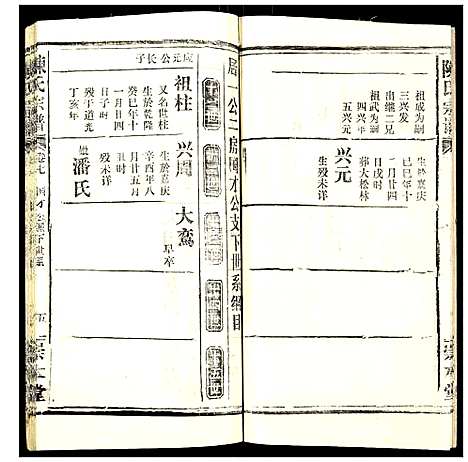 陳氏宗譜
祖成为嗣
三兴发
出继二兄
祖武为嗣
五兴元
兴元
生於嘉庆
己巳年十
一月廿四
日戌时
葬大松林
殁未详
周一公二房
才公支下世系綱目
成元公长子
祖柱
又名世柱
生於乾隆
癸巳年十
一月廿四
日子时
殁于道光
丁亥年
兴周
生於嘉庆
辛酉年八
月廿五月
丑时
殁未详
潘氏
大鸾
早卒
陳氏宗譜
卷七
五
堂